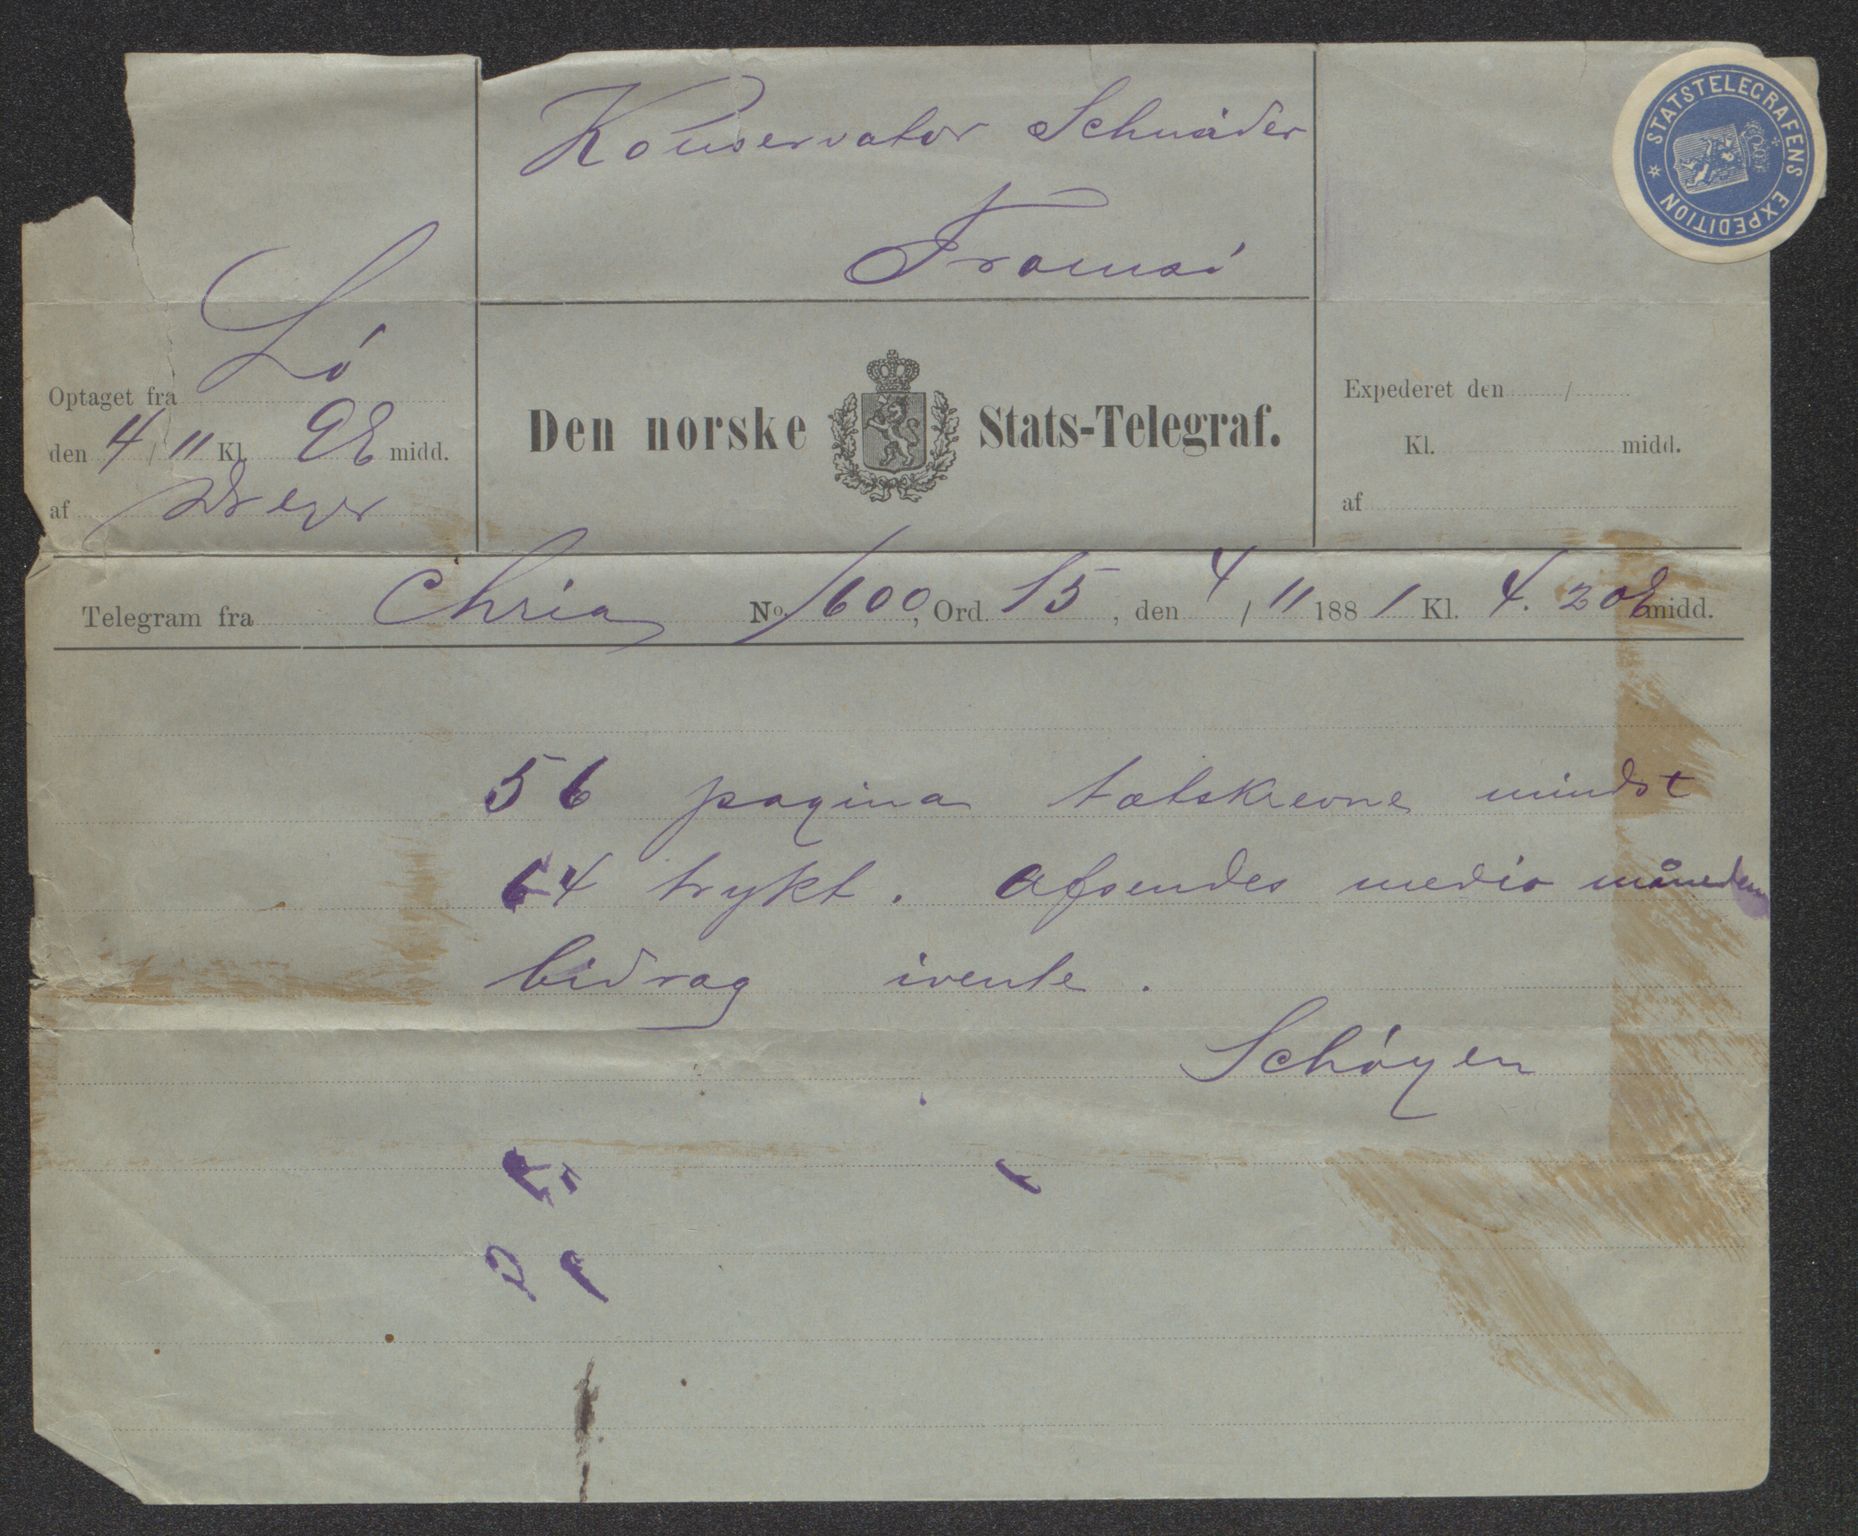 Konservator Schneider
Tromsø
STATSTELEGRAFENS EXPEDITION
Optaget fra Lö
den 4/11 Kl. 9 E midd.
af
Den norske Stats-Telegraf.
Expederet den /
Kl. midd.
af
Telegram fra Chria No. 1600, Ord. 15, den 4/11 1881 Kl. 4.20 E midd.
56 pagina tætskrevne mindst
64 trykt. Afsendes medio måneden
bidrag ivente.
Schøyen